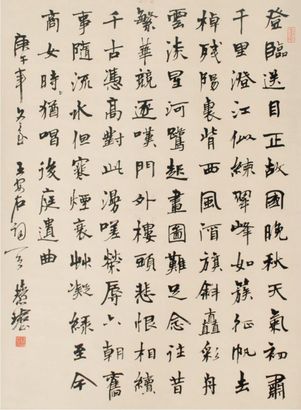 登臨送目正故國晚秋天氣初肅
千里澄江似練翠峰如簇征帆去
棹殘陽裏背西風酒旗斜矗彩舟
雲淡星河鷺起畫圖難足念往昔
繁華競逐嘆門外樓頭悲恨相續
千古憑高對此漫嗟榮辱六朝舊
事隨流水但寒煙衰艸凝綠至今
商女時〻猶唱後庭遺曲
庚午年 王安石詞